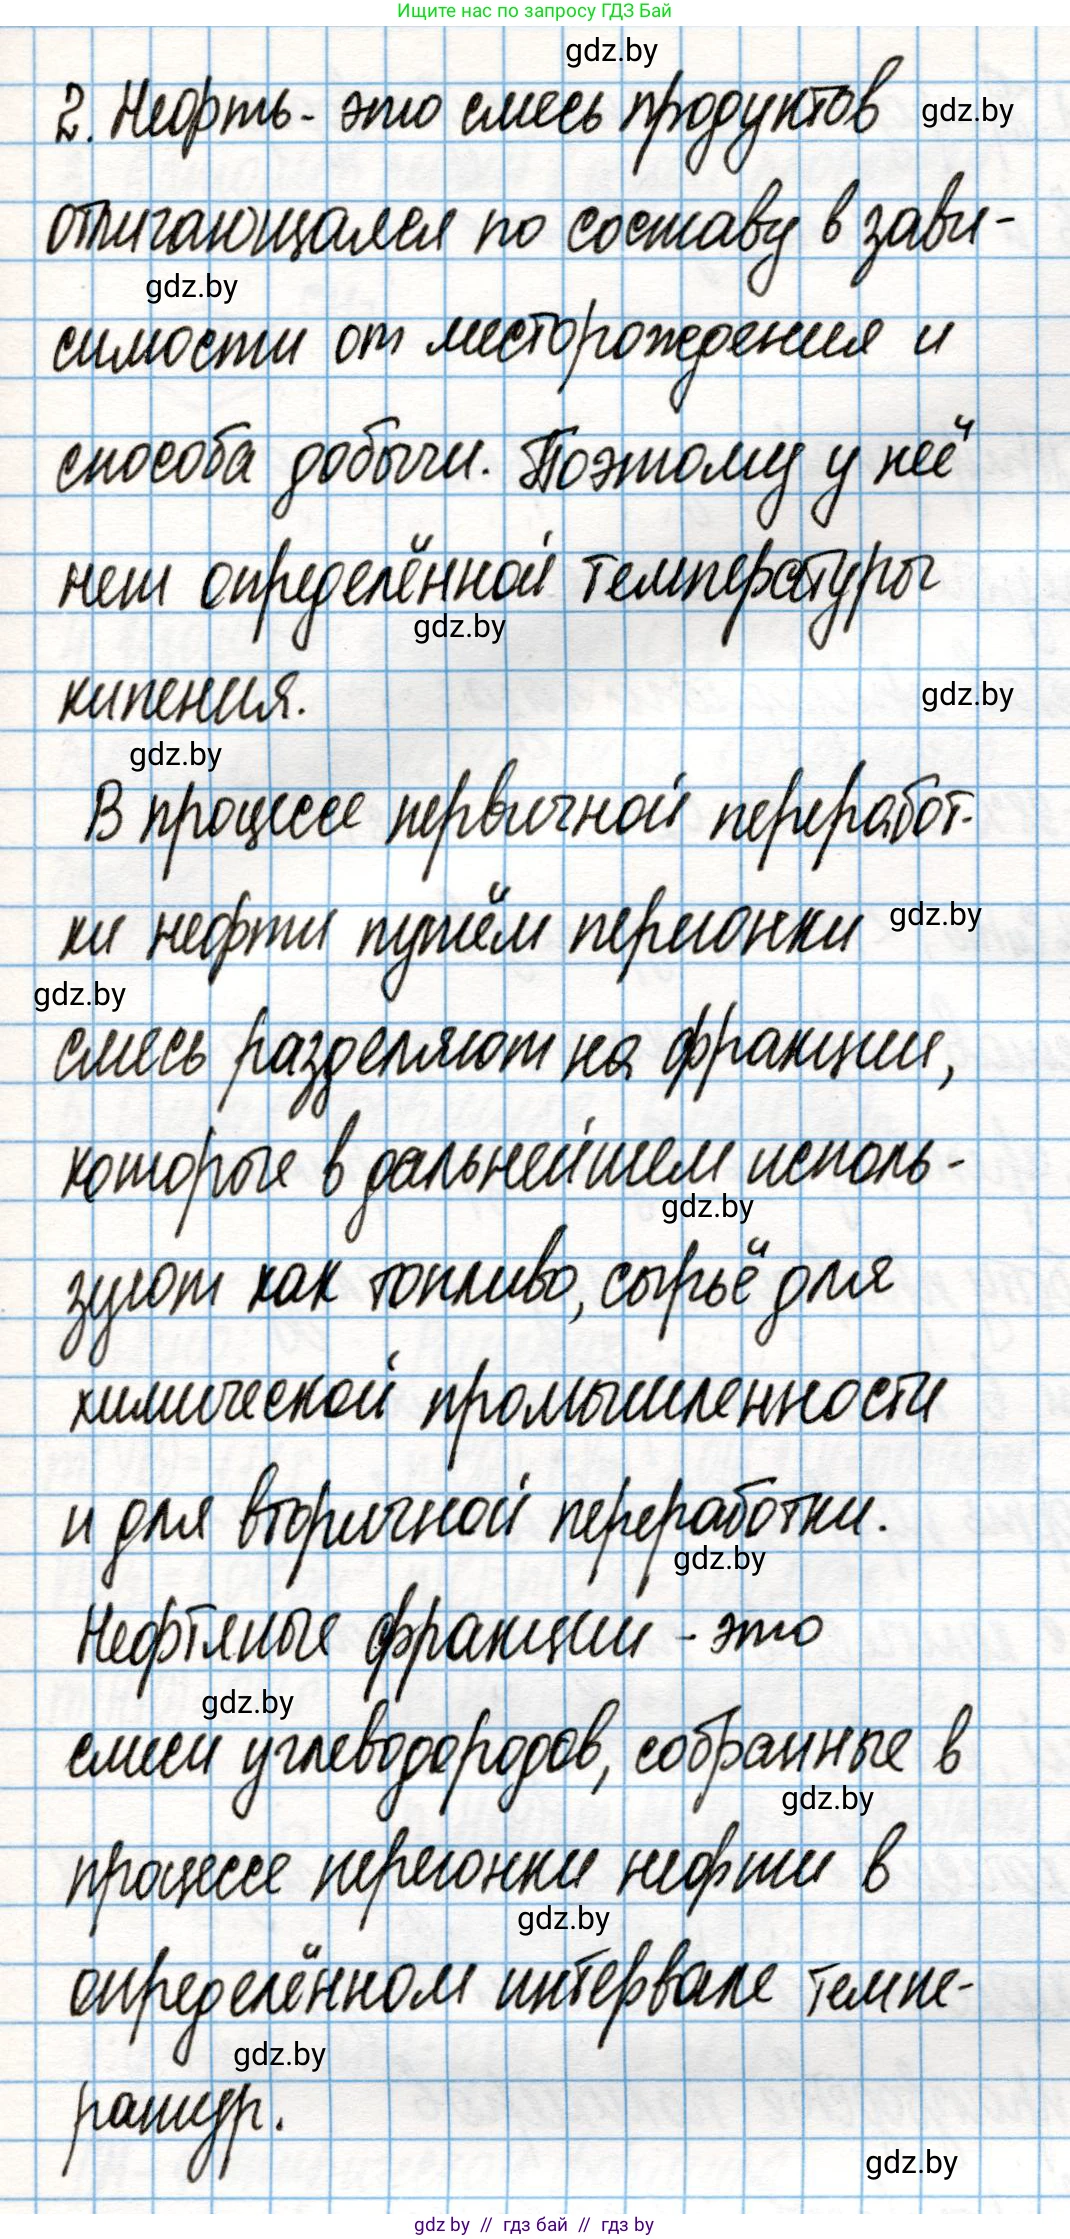 Ищите нас по запросу ГДЗ Бай
gdz.by
2. Нефть - это смесь продуктов
gdz.by
отличающаяся по составу в зави-
gdz.by
симости от месторождения и
способа добычи. Поэтому у неё
нет определённой температуры
gdz.by
кипения.
gdz.by
gdz.by
В процессе первичной переработ-
ки нефти путём перегонки
gdz.by
gdz.by
смесь разделяют на фракции,
которые в дальнейшем исполь-
gdz.by
зуют как топливо, сырьё для
химической промышленности
и для вторичной переработки.
gdz.by
Нефтяные фракции - это
gdz.by
смеси углеводородов, собранные в
gdz.by
процессе перегонки нефти в
gdz.by
определённом интервале темпе-
gdz.by
ратур.
gdz.by
gdz by // гдз бай // гдз by